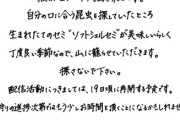 自分の口に合う昆虫を探していたところ
生まれたてのセミ"ソフトシェルセミ"が美味しいらしく
丁度良い季節なので、山に籠らせていただきます。
探さないで下さい。
配信活動につきましては、19日頃に再開する予定です。
狩りの進捗次第ではもう少しお時間を頂くことになるかもしれませ